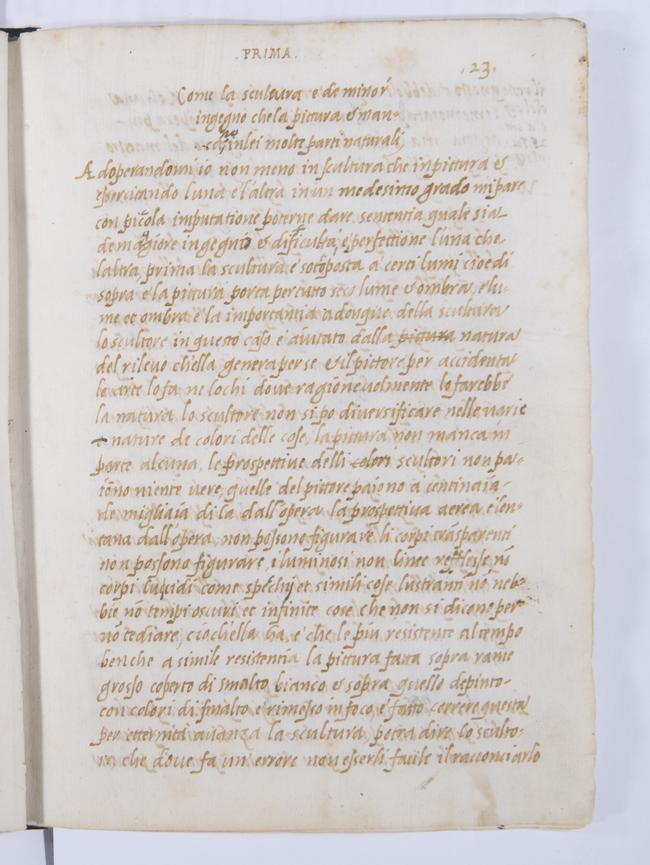 . PRIMA .
. 23 .
Come la scultura e de minor
ingegno che la pictura & man-
ca in lei molte parti naturali
Adoperandomi io non meno in scultura che in pictura &
essercitando l'una e l'altra in un medesimo grado mi pare
con picola imputatione poterne dare sententia quale sia
de magiore ingegnio & dificultà, e perfettione l'una che
l'altra, prima la scultura è sottoposta a certi lumi cioe di
sopra e la pittura porta per tutto seco lume & ombra, e lu-
me et ombra è la importantia adonque della scultura
lo scultore in questo caso è aiutato dalla pictura natura
del rilevo ch'ella genera per se & il pittore per accidenta-
le arte lo fa ne lochi dove ragionevolmente lo farebbe
la natura, lo scultore non si po diversificare nelle varie
nature de colori delle cose, la pittura non manca in
parte alcuna, le prospettive delli colori scultori non pa-
iono niente vere, quelle del pittore paiono a centinaia
de migliaia di la dall'opera, la prospettiva aerea è lon-
tana dall'opera, non possono figurare li corpi trasparenti
non possono figurare, i luminosi non linee reflesse nò
corpi lucidi come spechij et simili cose lustranti nò neb-
bie nò tempi oscuri et infinite cose che non si dicono per
nò tediare, ciò ch'ella ha, è che le più resistente al tempo
benche a simile resistentia la pittura fatta sopra rame
grosso coperto di smalto bianco & sopra quello depinto
con colori di smalto e rimesso in foco e fatto correre questa
per etternità avanza la scultura, potra dire lo sculto-
re che dove fa un errore non esserli facile il racconciarlo